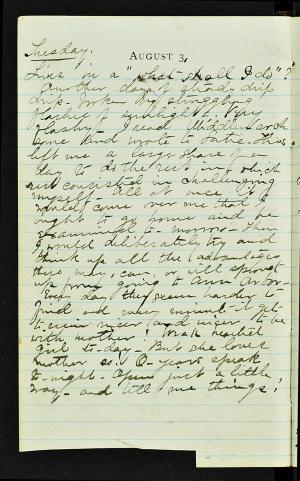 Tuesday.
AUGUST 3,
Lines in a "what shall I do"?
Another day of steady drip
drip- broken by struggling
flashes of sunlight. Very
flashy- I read Middlemarch
some and wrote to Katie. This
left me a large share of
day to do the rest in, which
rest consisted in challenging
myself. All at once it
would come over me that I
ought to go home and be
examined to-morrow- Then
I would deliberately try and
think up all the advantages
there may, can, or will sprout
up from going to Ann Arbor-
Every day they seem harder to
find and every minute it gets
to seem nicer and nicer to be
with mother! Weak hearted
girl to-day- But she loves
mother so! O- years speak
to-night- Open just a little
way- and tell me things!